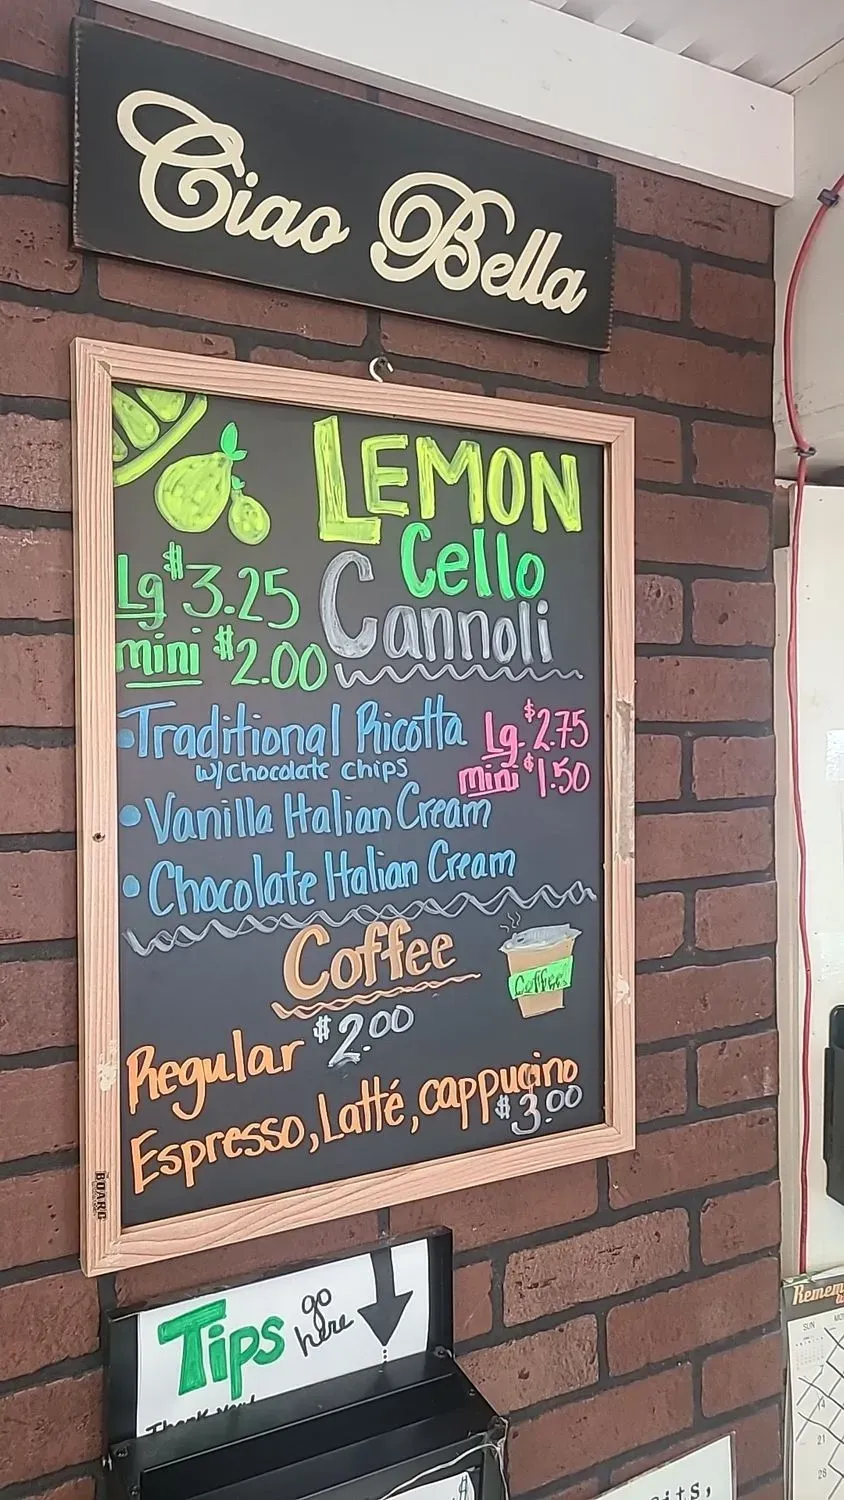 Ciao Bella
LEMON
Cello
Cannoli
Lg $3.25
mini $2.00
• Traditional Ricotta
w/chocolate chips
Lg $2.75
mini $1.50
• Vanilla Italian Cream
• Chocolate Italian Cream
Coffee
Coffee
Regular $2.00
Espresso, Latté, cappucino
$3.00
BOARD
Tips go here
Thank you!
SUN
14
21
28